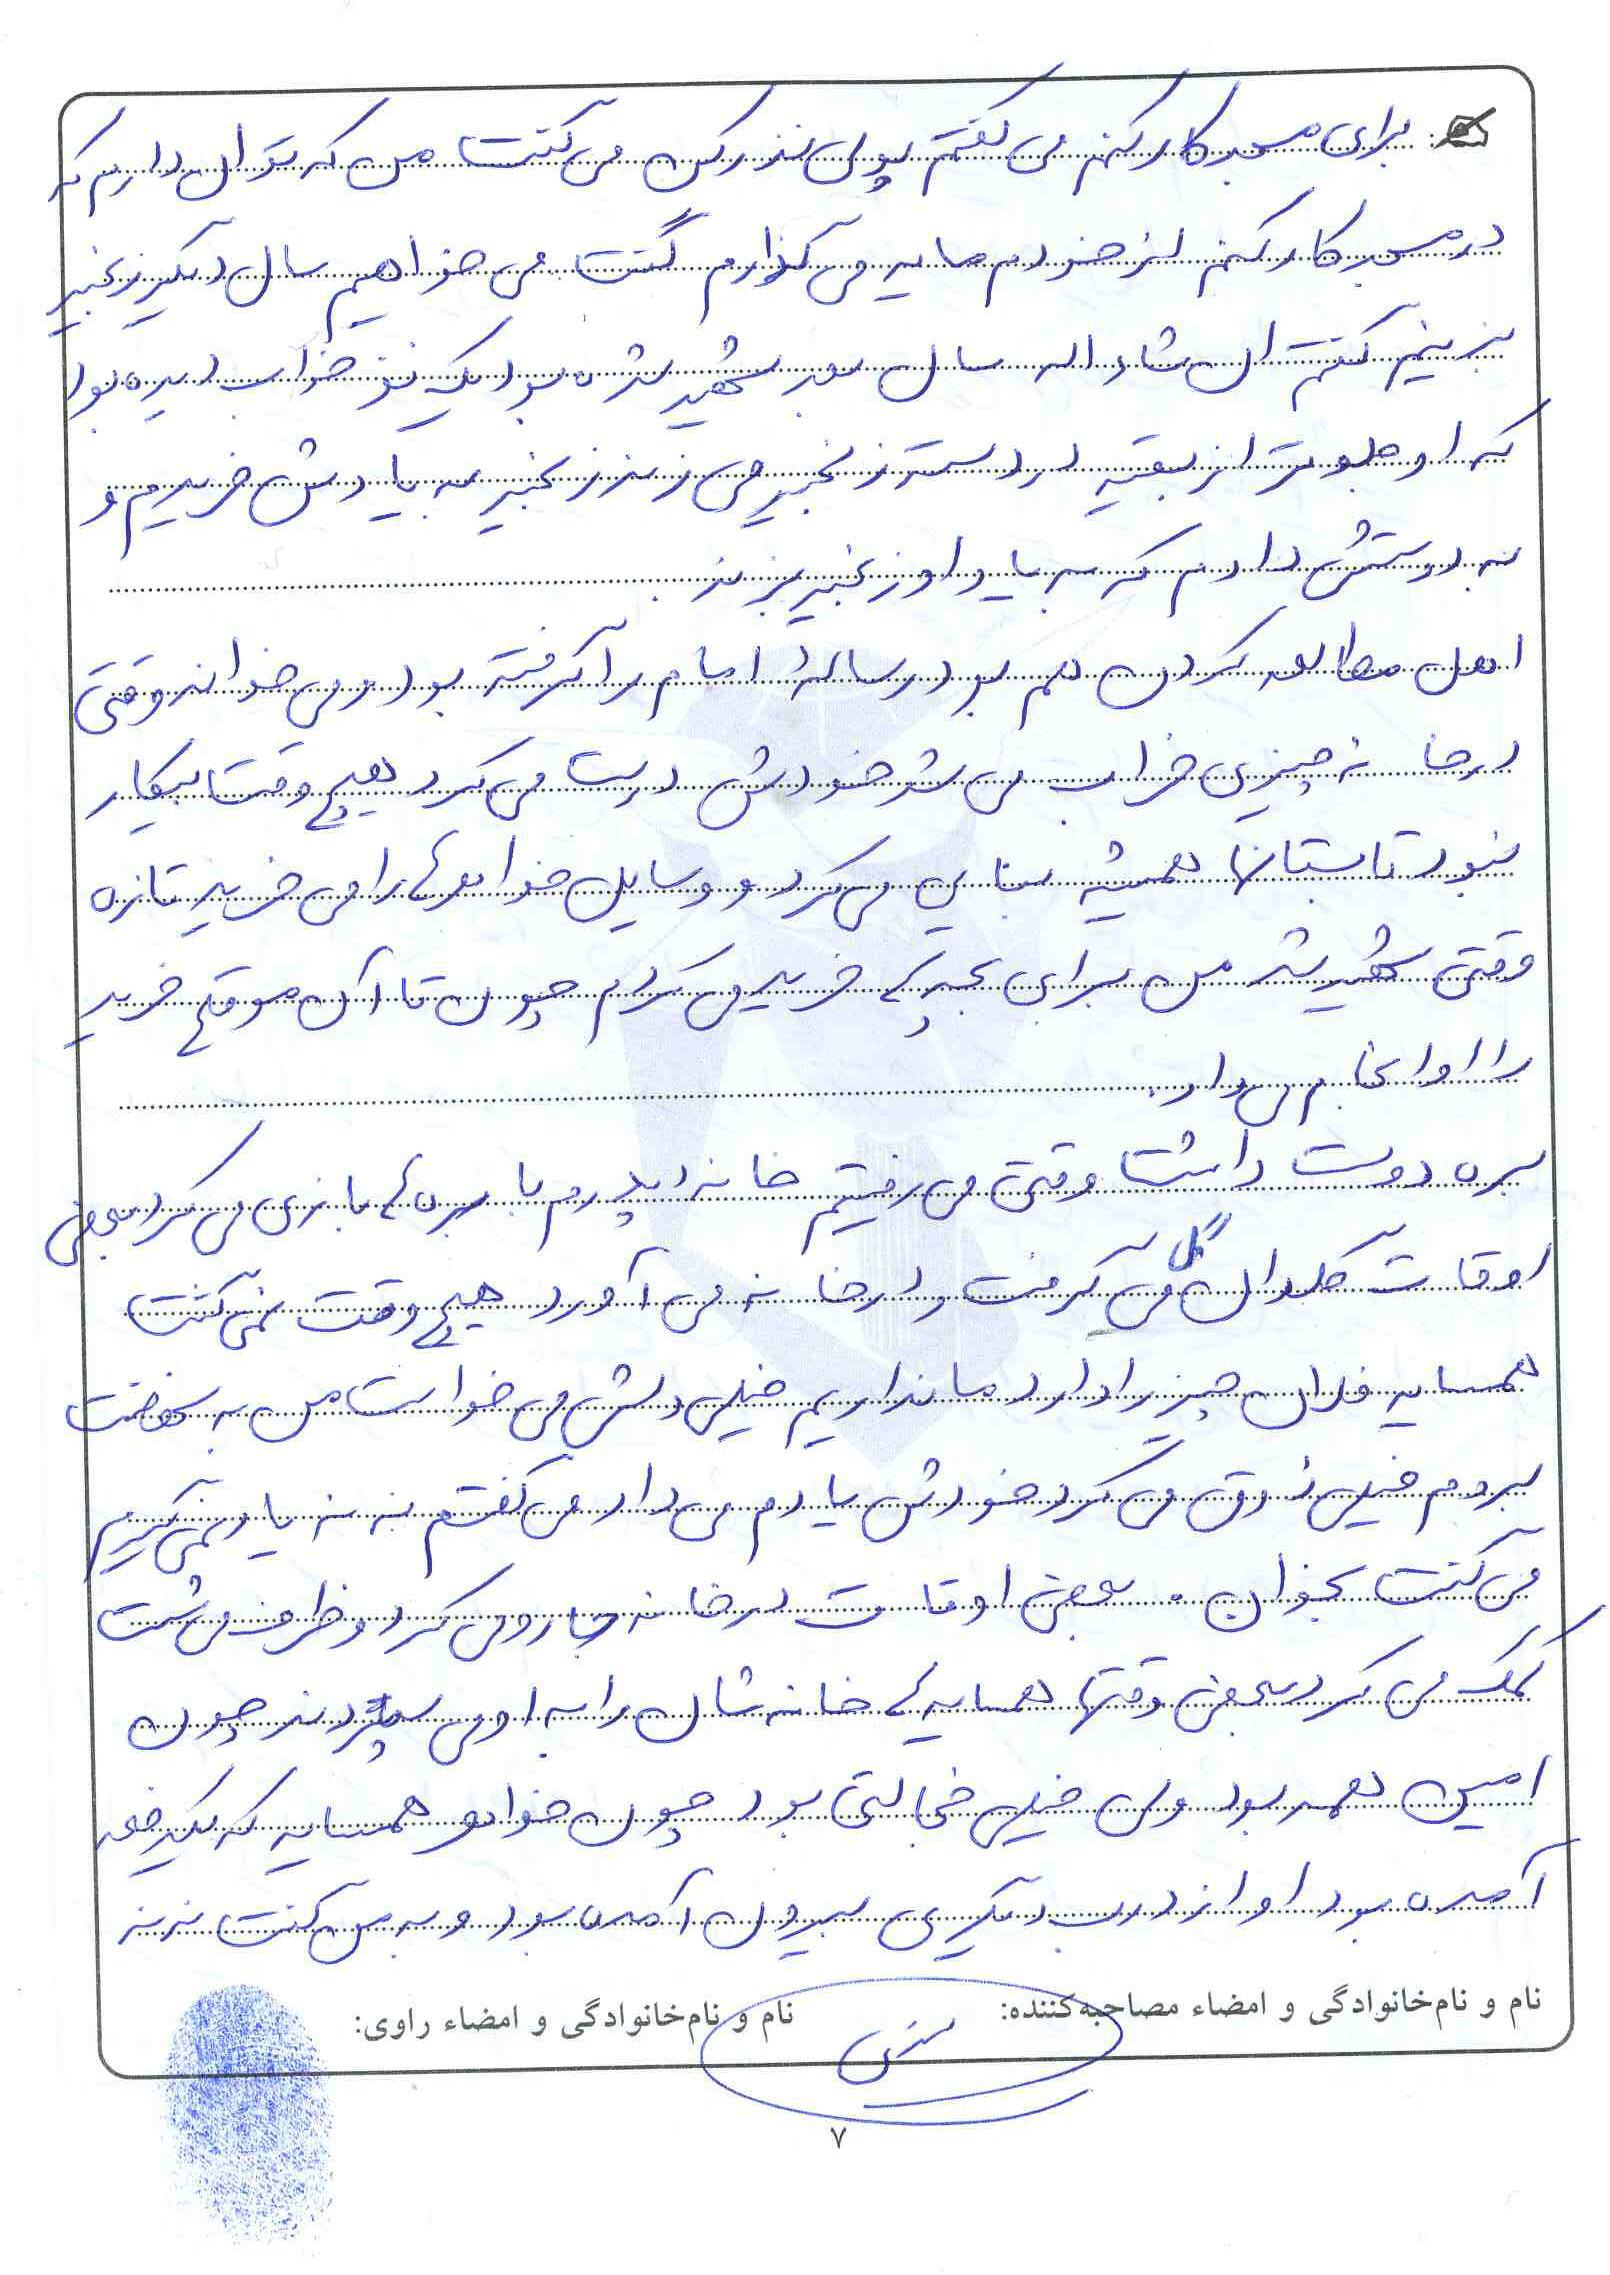 برای مسجد کار کنم می گفتم پولی نذر کن می گفت من که توان دارم که
در مسجد کار کنم از خودم مایه می گذارم گفت می خواهیم سال دیگر زنجیر
بزنیم گفتم ان شاء اله سال بعد شهید شده بود یک نفر خواب دیده بود
که او جلوتر از بقیه در دسته زنجیر می زند زنجیر به یادش خریدم و
به دوستش دادم که به یاد او زنجیر بزند.
اهل مطالعه کردن هم بود رساله امام را گرفته بود و می خواند وقتی
در خانه چیزی خراب می شد خودش درست می کرد هیچ وقت بیکار
نبود تابستانها همیشه بنایی می کرد و وسایل خواهرش را می خرید تازه
وقتی شهید شد من برای بچه ها خرید می کردم چون تا آن موقع خرید
را او انجام می داد.
بره دوست داشت وقتی می رفتیم خانه پدرم با بره ها بازی می کرد بعضی
اوقات گلدان گل می گرفت و در خانه می آورد هیچ وقت نمی گفت
همسایه فلان چیز را دارد ما نداریم خیلی دلش می خواست من به نهضت
بروم خیلی ذوق می کرد خودش یادم می داد می گفتم ننه یاد نمی گیرم
می گفت بخوان. بعضی اوقات در خانه جارو می کرد و ظرف می شست
کمک می کرد بعضی وقتها همسایه ها خانه شان را به او می سپردند چون
امین همه بود ولی خیلی خجالتی بود چون خواهر همسایه که یکدفعه
آمده بود او از درب دیگری بیرون آمده بود و به من گفت ننه
نام و نام‌خانوادگی و امضاء مصاحبه‌کننده:
نام و نام‌خانوادگی و امضاء راوی:
۷